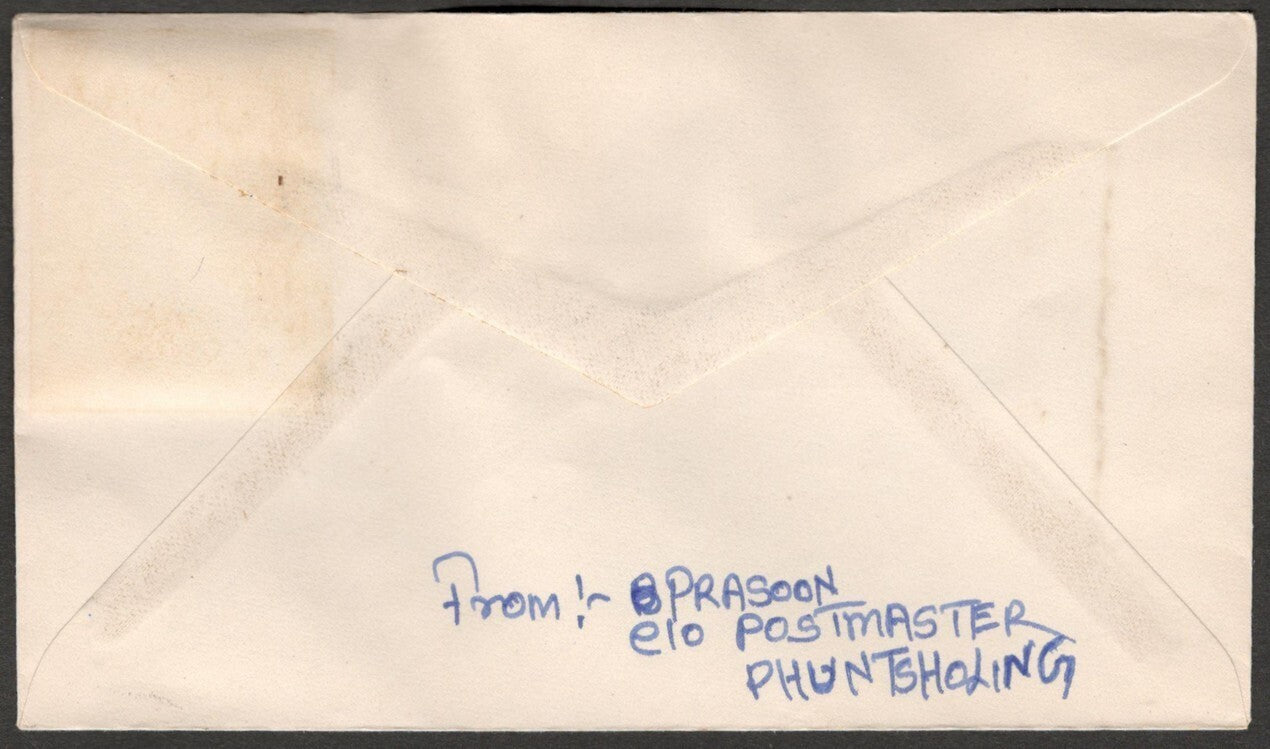 From :- PRASOON
C/O POSTMASTER
PHUNTSHOLING